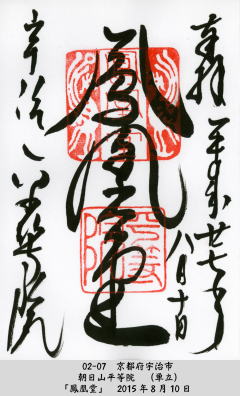 奉拝
平成廿七年
八月十日
鳳凰堂
宇治
平等院
02-07　京都府宇治市
朝日山平等院　（単立）
「鳳凰堂」　2015年8月10日